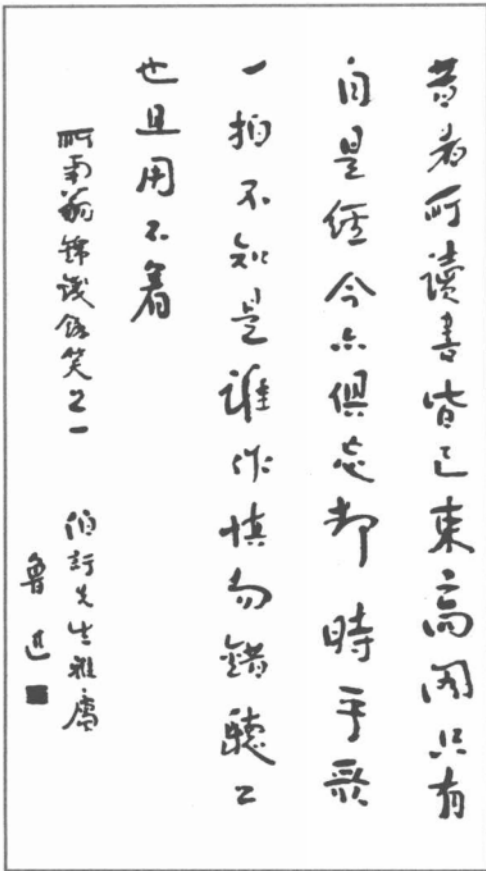 昔者所讀書皆已束高閣只有
自是經今亦俱忘却時乎歌
一拍不知是誰作慎勿錯聽之
也且用不着
所南翁錦錢餘笑之一 伯訏先生雅屬
魯迅